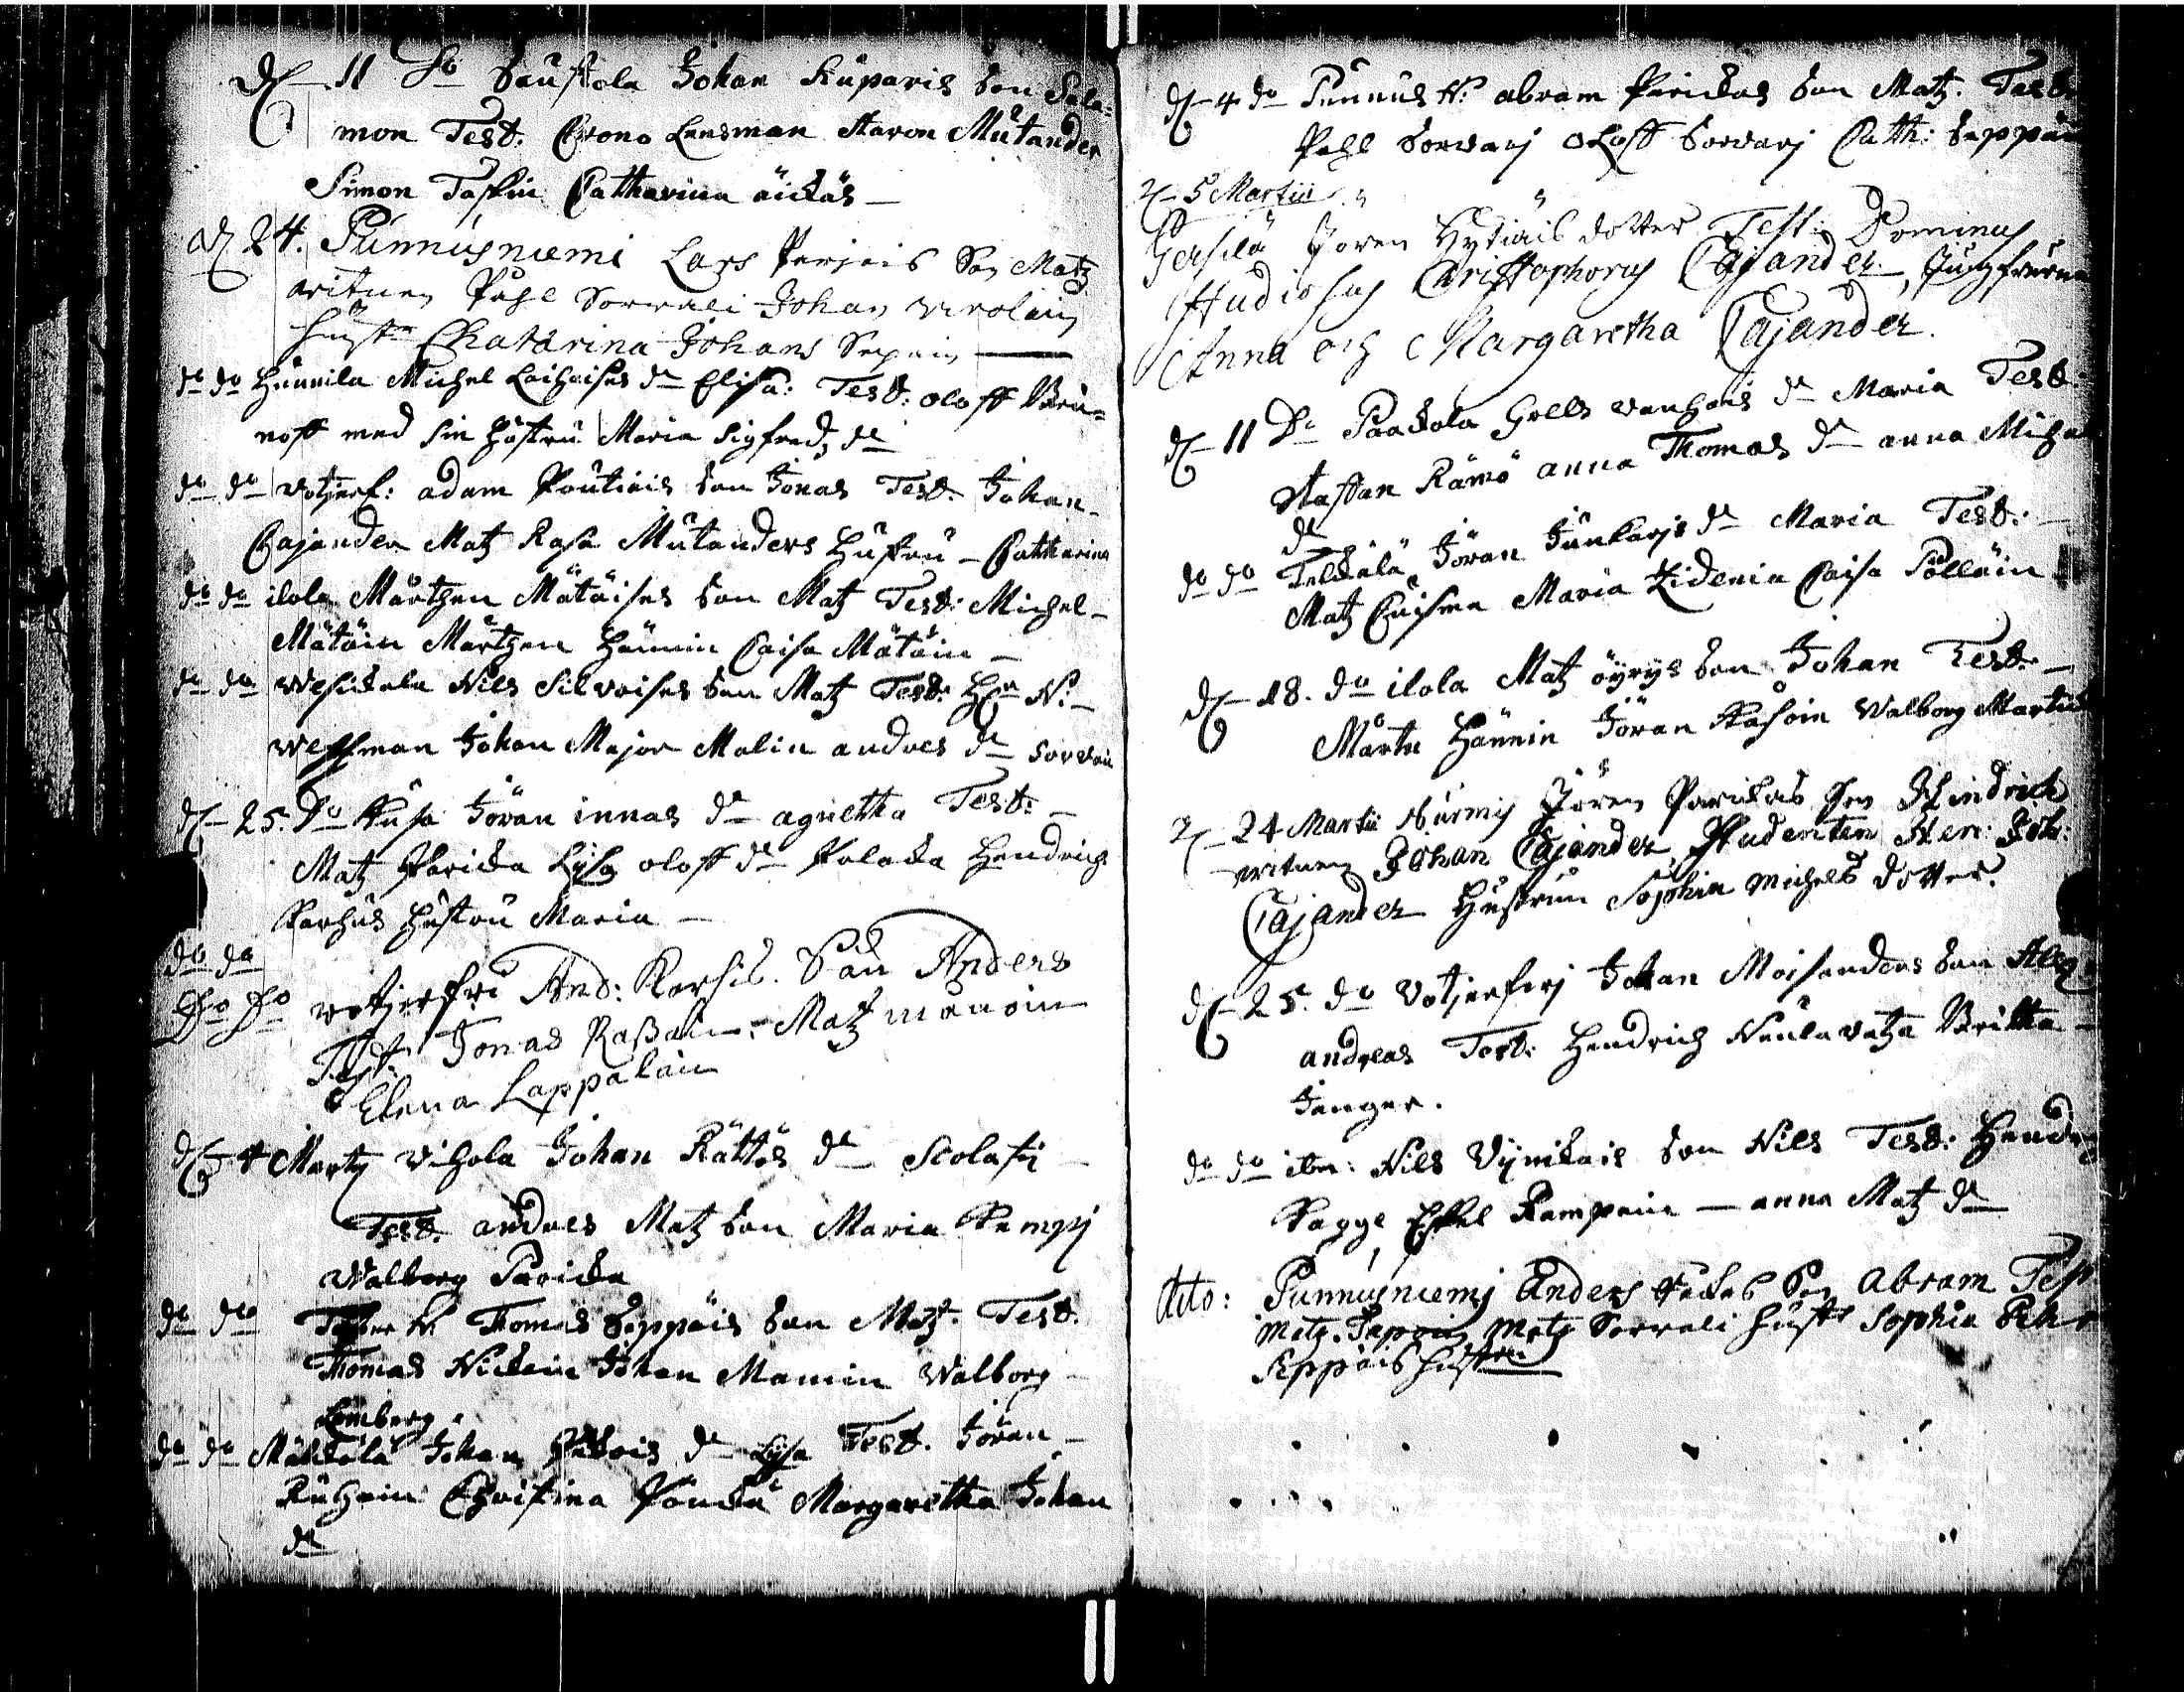 d. 11 Do Sauskola Johan Kuparis Son Salo-
mon Test. Crono Lensman Aaron Mutander
Simon Taskin Catharina äickäs —
d. 24. Punnusniemi Lars Parjais Son Matz
witnen Påhl Sorvali Johan Virolain
hustr Chatarina Johans Sepein —
do do Hunnila Michel Laihaises dr Elisa: Test: oloff Bru-
noff med sin hustru Maria Sigfredz dr
do do votjerf: adam Poutiais Son Jonas Test. Johan
Cajander Matz Rasa Mutanders Hustru — Catharina
do do ilola Mårtzen Mätäises Son Matz Test: Michel —
Mätäin Mårtzen Hännin Caisa Mätäin —
do do Wesickala Nils Silvoises Son Matz Test: Hr N. —
Wessman Johan Major Malin andres dr Sorvain
d. 25. Do Kusa Jöran innas dr agnetha Test: —
Matz Paricka Lisa oloff dr Valcka Hendrich
Karhus hustru Maria —
do do
Do Do votjerfwi And: Karhis. Son Anders
Test. Jonas Raßain. Matz mönöin
Elena Lappalain
d. 4 Marty Vihola Johan Rättös dr Scolasti —
Test. andres Matz Son Maria Kempi
Walborg Paricka
do do Thomas Seppäis Son Matz. Test.
Thomas Nickain Johan Mamin Walborg —
Lemberg.
do do Mäckälä Johan Häckois dr Lisa Test. Jöran —
Ruhain Christina Pöncka Margaretha Johan
dr
d. 4 do Punnus N: abram Parickas Son Matz. Test.
Påhl Sorvarj oloff Sorvarj Cath: Seppän
d. 5 Martii
Jerfilä Jören Hytiäis dotter Test: Dominus
Studiosus Christophorus Cajander, Jungfruerna
Anna och Margaretha Cajander.
d. 11 Do Paackola Grels vanhais dr Maria Test.
Staffan Rämö anna Thomas dr anna Michel
dr
do do Telckälä Jöran Junkarjs dr Maria Test. —
Matz Cuisma Maria Zidenia Caisa Pölläin
d. 18. do ilola Matz öyrys Son Johan Test. —
Mårtn Hännin Jöran Kasoin Walborg Martid
d. 24 Martii Nurmis Jören Parickas Son Hindrich
witnen Johan Cajander, Studenten Hen: Joh:
Cajander Hustrun Sophia Michels dotter.
d. 25. do Votjerfwj Johan Moisanders Son Alex
andreas Test: Hendrich Neulavatza Britta —
Tenger.
do do item: Nils Vijnickais Son Nils Test: Hendr
Kagge Eskel Kampain — anna Matz dr
dito: Punnusniemj Anders Son Abram Test
Matz. Matz Sorvali hustr Sophia
Seppäis hustru